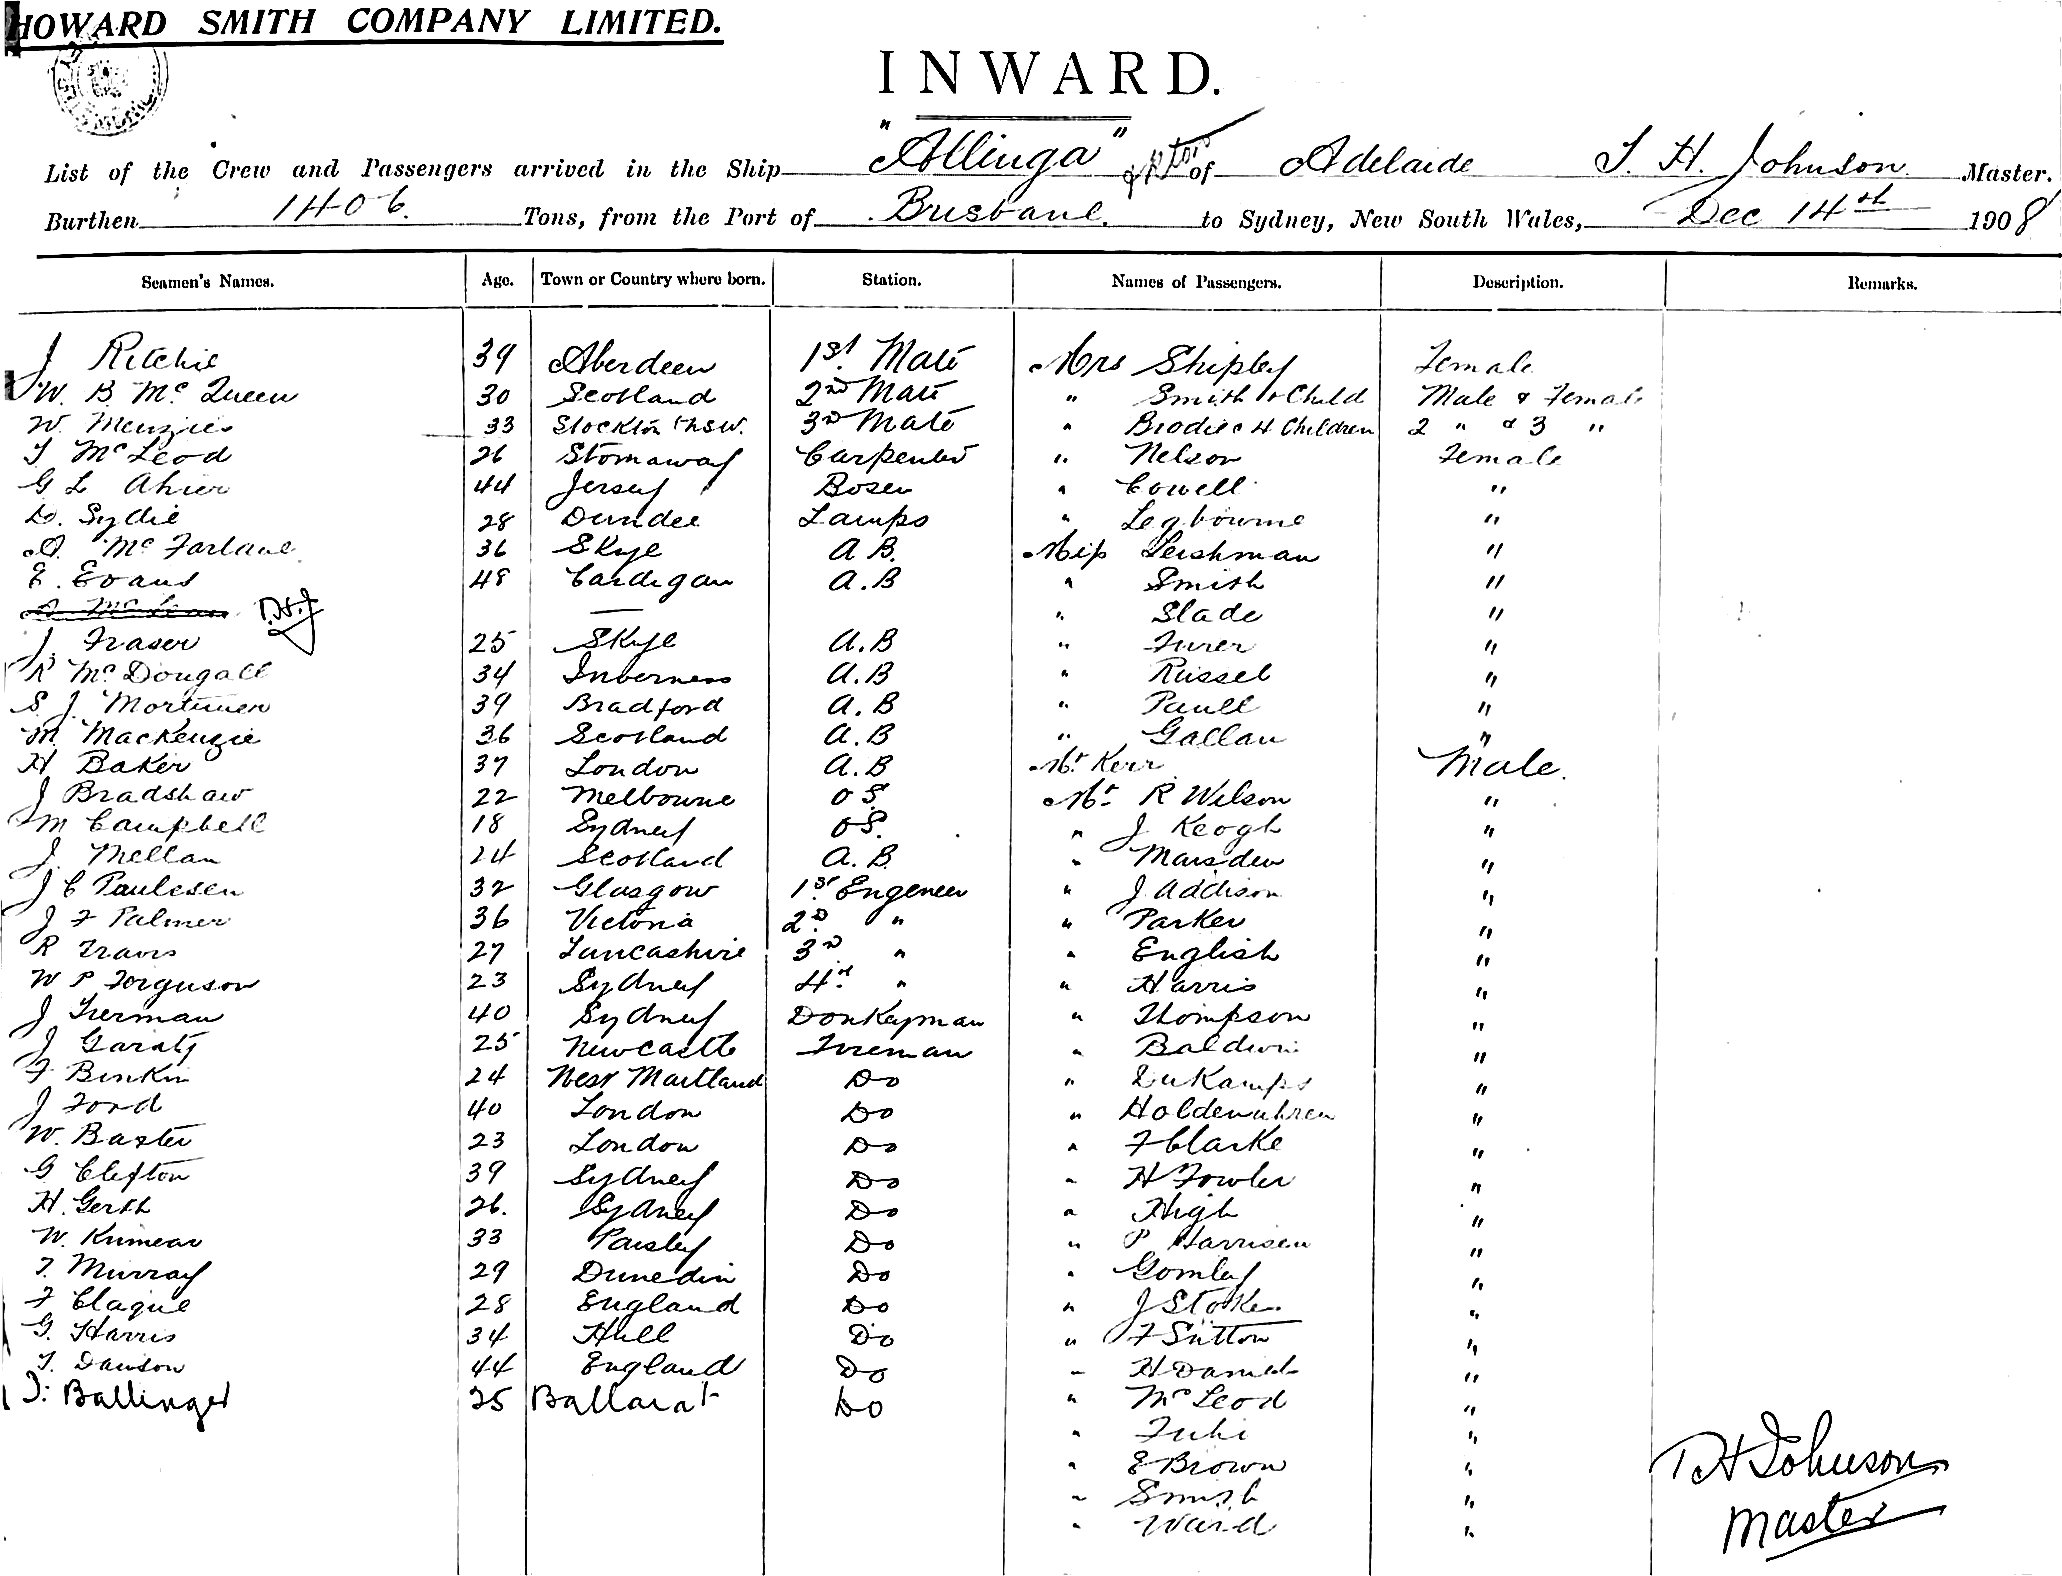 HOWARD SMITH COMPANY LIMITED.
INWARD.
List of the Crew and Passengers arrived in the Ship "Allinga" of Adelaide T. H. Johnson Master.
Burthen 1406 Tons, from the Port of Brisbane. to Sydney, New South Wales, Dec 14th 1908
Seamen's Names. Age. Town or Country where born. Station. Names of Passengers. Description. Remarks.
J Ritchie 39 Aberdeen 1st Mate Mrs Shipley Female
W. B. Mc Queen 30 Scotland 2nd Mate " Smith & Child Male & Female
W. Menzies 33 Stockton NSW. 3rd Mate " Brodie & 4 Children 2 " & 3 "
T McLeod 26 Stornaway Carpenter " Nelson Female
G L Ahier 44 Jersey Bosen " Cowell "
D. Sydie 28 Dundee Lamps " Legbourne "
A. Mc Farlane 36 Skye A B. Miss Leishman "
E. Evans 48 Cardigan A.B " Smith "
— " Slade "
J. Fraser 25 Skye A.B " Furer "
R McDougall 34 Inverness A.B " Russel "
S. J. Mortimer 39 Bradford A.B " Paull "
M. Mackenzie 36 Scotland A.B " Gallan "
H Baker 37 London A.B Mr Kerr Male.
J Bradshaw 22 Melbourne O S. Mr R Wilson "
M Campbell 18 Sydney O S. " J Keogh "
J. Mellan 24 Scotland A.B. " Marsden "
J C Paulesen 32 Glasgow 1st Engeneer " J Addison "
J F Palmer 36 Victoria 2d " " Parker "
R Travis 27 Lancashire 3rd " " English "
W P Ferguson 23 Sydney 4th " " Harris "
J Tierman 40 Sydney Donkeyman " Thompson "
J Garaty 25 Newcastle Fireman " Baldwin "
F Binkin 24 West Maitland Do " "
J Ford 40 London Do " "
W. Baxter 23 London Do " F Clarke "
G Clifton 39 Sydney Do " H Fowler "
H. Gerth 26. Sydney Do " High "
W. 33 Paisley Do " P Harrisen "
T. Murray 29 Dunedin Do " Gomley "
F Clague 28 England Do " J Stoken "
G. Harris 34 Hull Do " F Sutton "
T. Dawson 44 England Do " H Daniel "
T: Ballinger 25 Ballarat Do " McLeod "
" "
" E Brown "
" Smith "
" Ward "
T H Johnson
Master